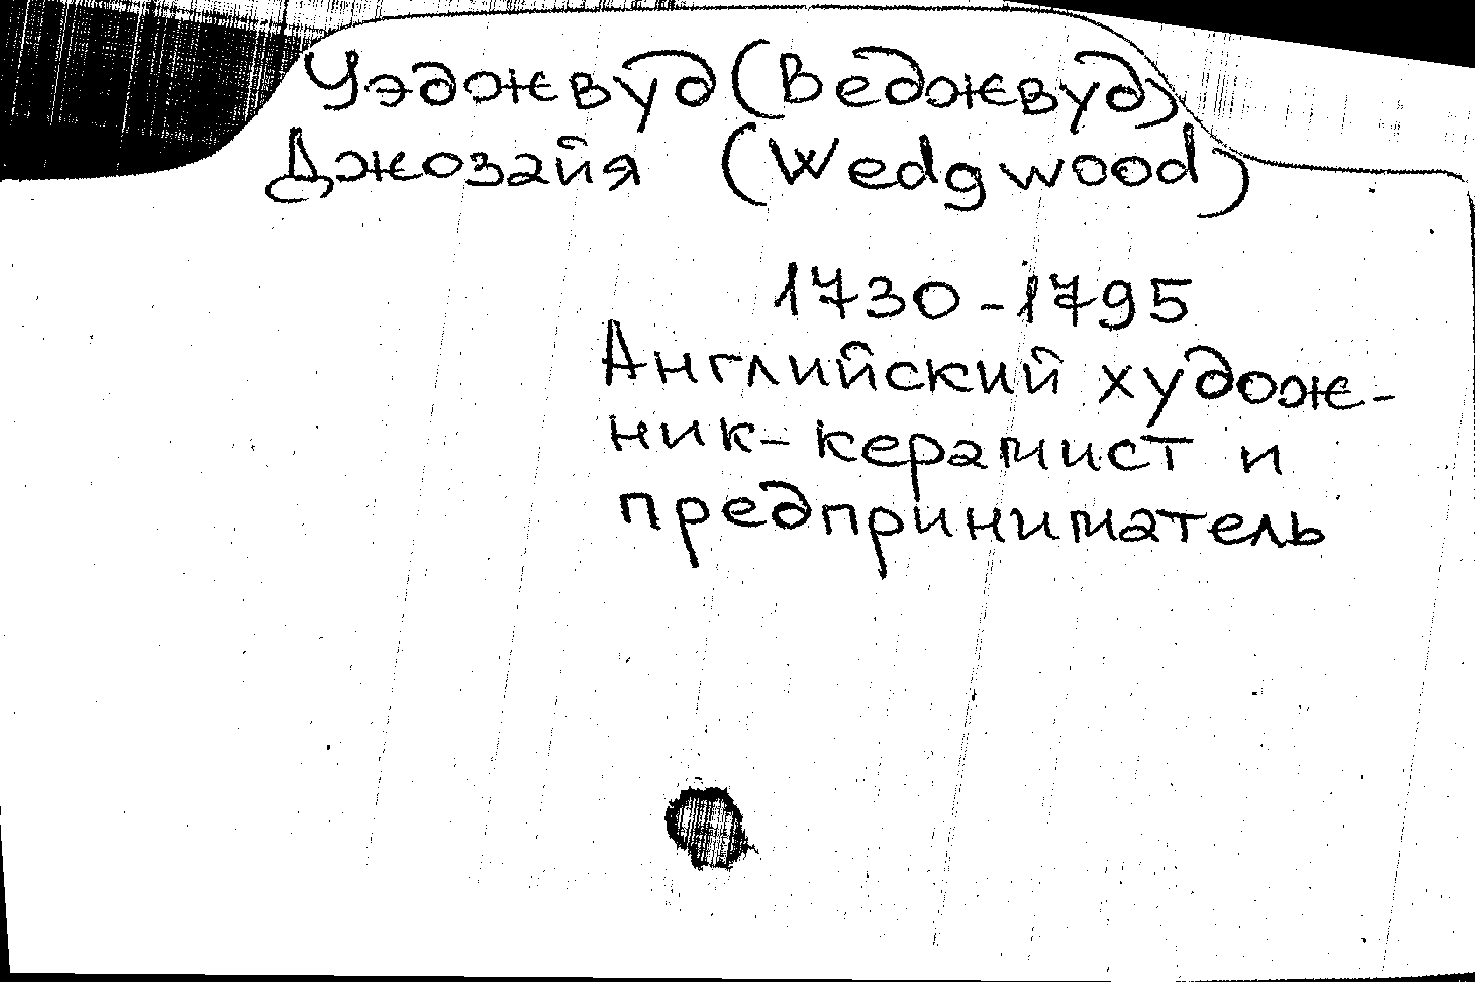 Уэджвуд (Веджвуд)
Джозайя (Wedgwood)
1730-1795
Английский худож-
ник-керамист и
предприниматель